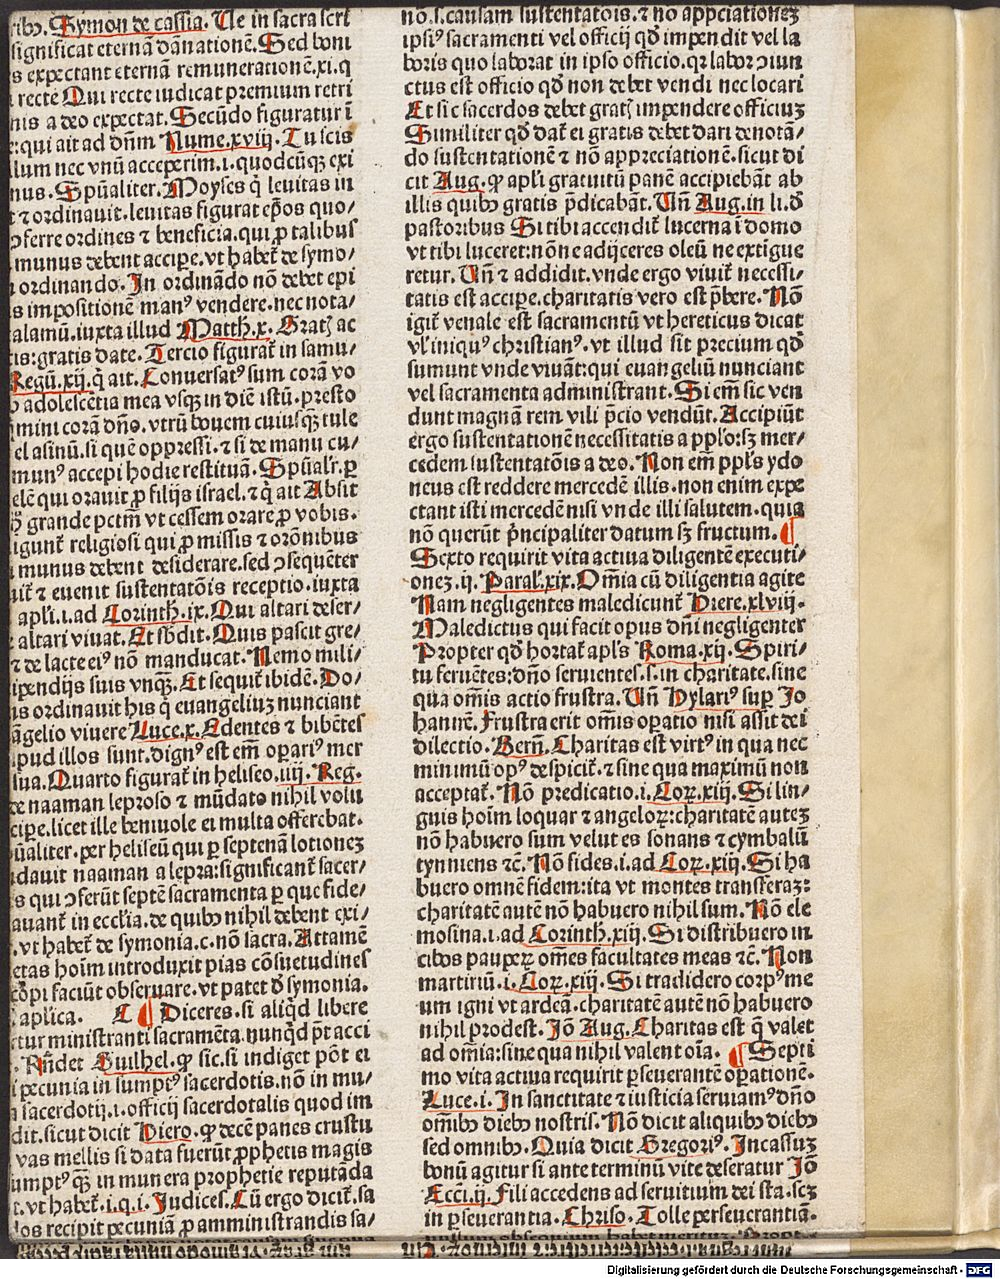 ribꝰ. Symon de cassia. Ue in sacra scri
significat eternā dānationē. Sed boni
s expectant eternā remunerationē.xi.q
recte Qui recte iudicat premium retri
nis a deo expectat. Secūdo figuratur ī
qui ait ad dn̄m Nume.xviij. Tu scis
lum nec vnū acceperim.i.quodcūqꝫ exi
nus. Spūaliter. Moyses q̇ leuitas in
⁊ ordinauit.leuitas figurat ep̄os quo/
ↄferre ordines ⁊ beneficia.qui ꝓ talibus
munus debent accipe.vt habet᷑ de symo/
ordinando. In ordinādo nō debet epi
s impositionē manꝰ vendere.nec nota/
alamū.iuxta illud Matth.x. Gratꝭ ac
tis:gratis date. Tercio figurat᷑ in samu/
Regū.xij.q̇ ait. Conuersatꝰ sum corā vo
adolescētia mea vsqꝫ in diē istū.presto
mini corā dn̄o.vtrū bouem cuiusqꝫ tule
el asinū.si quē oppressi.⁊ si de manu cu/
munꝰ accepi hodie restituā. Spūalr̄.ꝑ
elē qui orauit ꝓ filijs israel.⁊ q̇ ait Absit
grande pctm̄ vt cessem orare ꝓ vobis.
igunt᷑ religiosi qui ꝓ missis ⁊ orōnibus
munus debent desiderare.sed ↄsequēter
uit᷑ ⁊ euenit sustentatōis receptio.iuxta
apl̄i.i.ad Corinth.ix. Qui altari deser/
altari viuat. Et sb̄dit. Quis pascit gre/
⁊ de lacte eiꝰ nō manducat. Nemo mili/
ipendijs suis vnqꝫ. Et sequit᷑ ibidē. Do/
is ordinauit his q̇ euangeliuꝫ nunciant
āgelio viuere Luce.x. Edentes ⁊ bibētes
pud illos sunt.dignꝰ est em̄ operiꝰ mer
sua. Quarto figurat᷑ in heliseo.iiij. Reg.
de naaman leproso ⁊ mūdato nihil volu
cipe.licet ille beniuole ei multa offerebat.
ūaliter.per heliseū qui ꝑ septenā lotionez
dauit naaman a lepra:significant᷑ sacer/
s qui ↄferūt septē sacramenta ꝑ que fide/
auant᷑ in eccl̄ia.de quibꝰ nihil debent exi/
vt habet᷑ de symonia.c.nō sacra. Attamē
etas hoīm introduxit pias cōsuetudines
ēpi faciūt obseruare.vt patet d̄ symonia.
apl̄ica. C ¶ Diceres.si aliq̇d libere
etur ministranti sacramēta.nunq̇d pōt acci
Rn̄det Guilhel.ꝙ sic.si indiget pōt ei
i pecunia in sumptꝰ sacerdotis.nō in mu/
sacerdotij.i.officij sacerdotalis quod im
dit.sicut dicit Hiero.ꝙ decē panes crustu
vas mellis si data fuerūt ꝓphetis magis
umptꝰ qꝫ in munera prophetie reputāda
t.vt habet᷑.i.q.i. Judices. Cū ergo dicit᷑.sa
dos recipit pecuniā ꝓ amministrandis sa/
no.s.causam sustentatōis.⁊ nō app̄ciationeꝫ
ipsiꝰ sacramenti vel officij qd̄ impendit vel la
boris quo laborat in ipso officio.qꝛ labor ↄiun
ctus est officio qd̄ non debet vendi nec locari
Et sic sacerdos debet gratꝭ impendere officiuꝫ
Similiter qd̄ dat᷑ ei gratis debet dari denotā/
do sustentationē ⁊ nō appreciationē.sicut di
cit Aug.ꝙ apl̄i gratuitū panē accipiebāt ab
illis quibꝰ gratis p̄dicabāt. Un̄ Aug.in li.d̄
pastoribus Si tibi accendit᷑ lucerna ī domo
vt tibi luceret:nōne adijceres oleū ne extigue
retur. Un̄ ⁊ addidit.vnde ergo viuit᷑ necessi/
tatis est accipe.charitatis vero est p̄bere. Nō
igit᷑ venale est sacramentū vt hereticus dicat
vl̓ iniquꝰ christianꝰ.vt illud sit precium qd̄
sumunt vnde viuāt:qui euangeliū nunciant
vel sacramenta administrant. Si em̄ sic ven
dunt magnā rem vili p̄cio vendūt. Accipiūt
ergo sustentationē necessitatis a ppl̄o:sꝫ mer/
cedem sustentatōis a deo. Non em̄ ppl̄s ydo
neus est reddere mercedē illis.non enim expe
ctant isti mercedē nisi vnde illi salutem.quia
nō querūt p̄ncipaliter datum sꝫ fructum. ¶
Sexto requirit vita actiua diligentē executi/
onez.ij. Paral̓.xix. Om̄ia cū diligentia agite
Nam negligentes maledicunt᷑ Hiere.xlviij.
Maledictus qui facit opus dn̄i negligenter
Propter qd̄ hortat᷑ apl̄s Roma.xij. Spiri/
tu feruētes:dn̄o seruientes.s.in charitate.sine
qua om̄is actio frustra. Un̄ Hylariꝰ suꝑ Jo
hannē. Frustra erit om̄is oꝑatio nisi assit dei
dilectio. Bern̄. Charitas est virtꝰ in qua nec
minimū opꝰ despicit᷑.⁊ sine qua maximū non
acceptat᷑. Nō predicatio.i. Coꝝ.xiij. Si lin/
guis hoīm loquar ⁊ angeloꝝ:charitatē autez
nō habuero sum velut es sonans ⁊ cymbalū
tynniens ⁊c̄. Nō fides.i.ad Coꝝ.xiij. Si ha
buero omnē fidem:ita vt montes transferaꝫ:
charitatē autē nō habuero nihil sum. Nō ele
mosina.i.ad Corinth.xiij. Si distribuero in
cibos pauperꝝ om̄es facultates meas ⁊c̄. Non
martiriū.i. Coꝝ.xiij. Si tradidero corpꝰ me
um igni vt ardeā.charitatē autē nō habuero
nihil prodest. Jō Aug. Charitas est q̄ valet
ad om̄ia:sine qua nihil valent oīa. ¶ Septi
mo vita actiua requirit ꝑseuerantē oꝑationē.
Luce.i. In sanctitate ⁊ iusticia seruiamꝰ dn̄o
om̄ibꝰ diebꝰ nostris. Nō dicit aliquibꝰ diebꝰ
sed omnibꝰ. Quia dicit Gregoriꝰ. Incassuꝫ
bonū agitur si ante terminū vite deseratur Jō
Ecci.ij. Fili accedens ad seruitium dei sta.scꝫ
in ꝑseuerantia. Chriso. Tolle perseuerantiā.
Digitalisierung gefördert durch die Deutsche Forschungsgemeinschaft - DFG